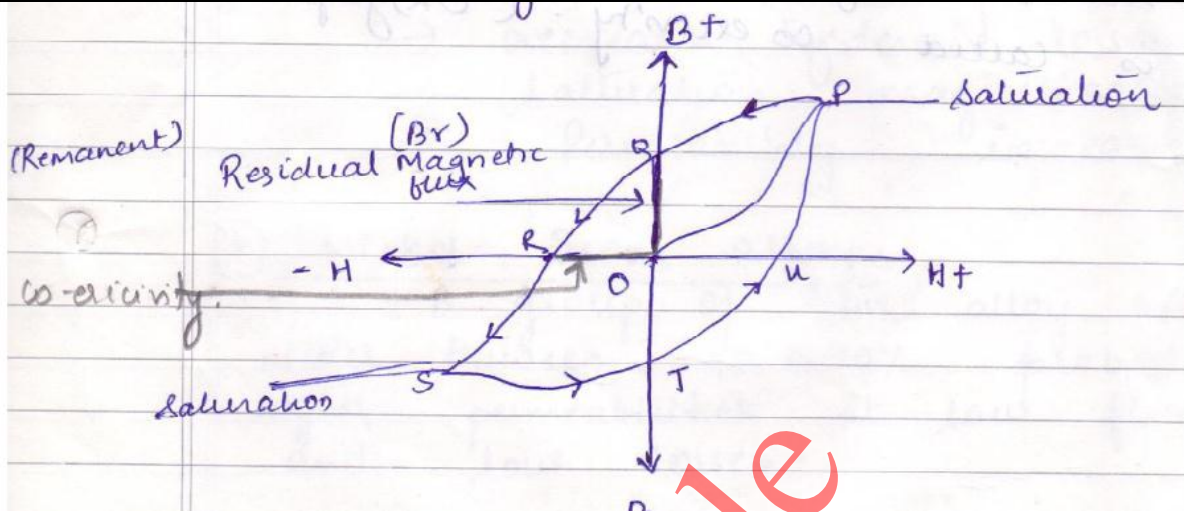 B+
P
Saturation
(Remanent)
(Br)
Residual Magnetic
flux
Q
R
- H
O
U
H+
Co-ericivity.
S
T
Saturation
le